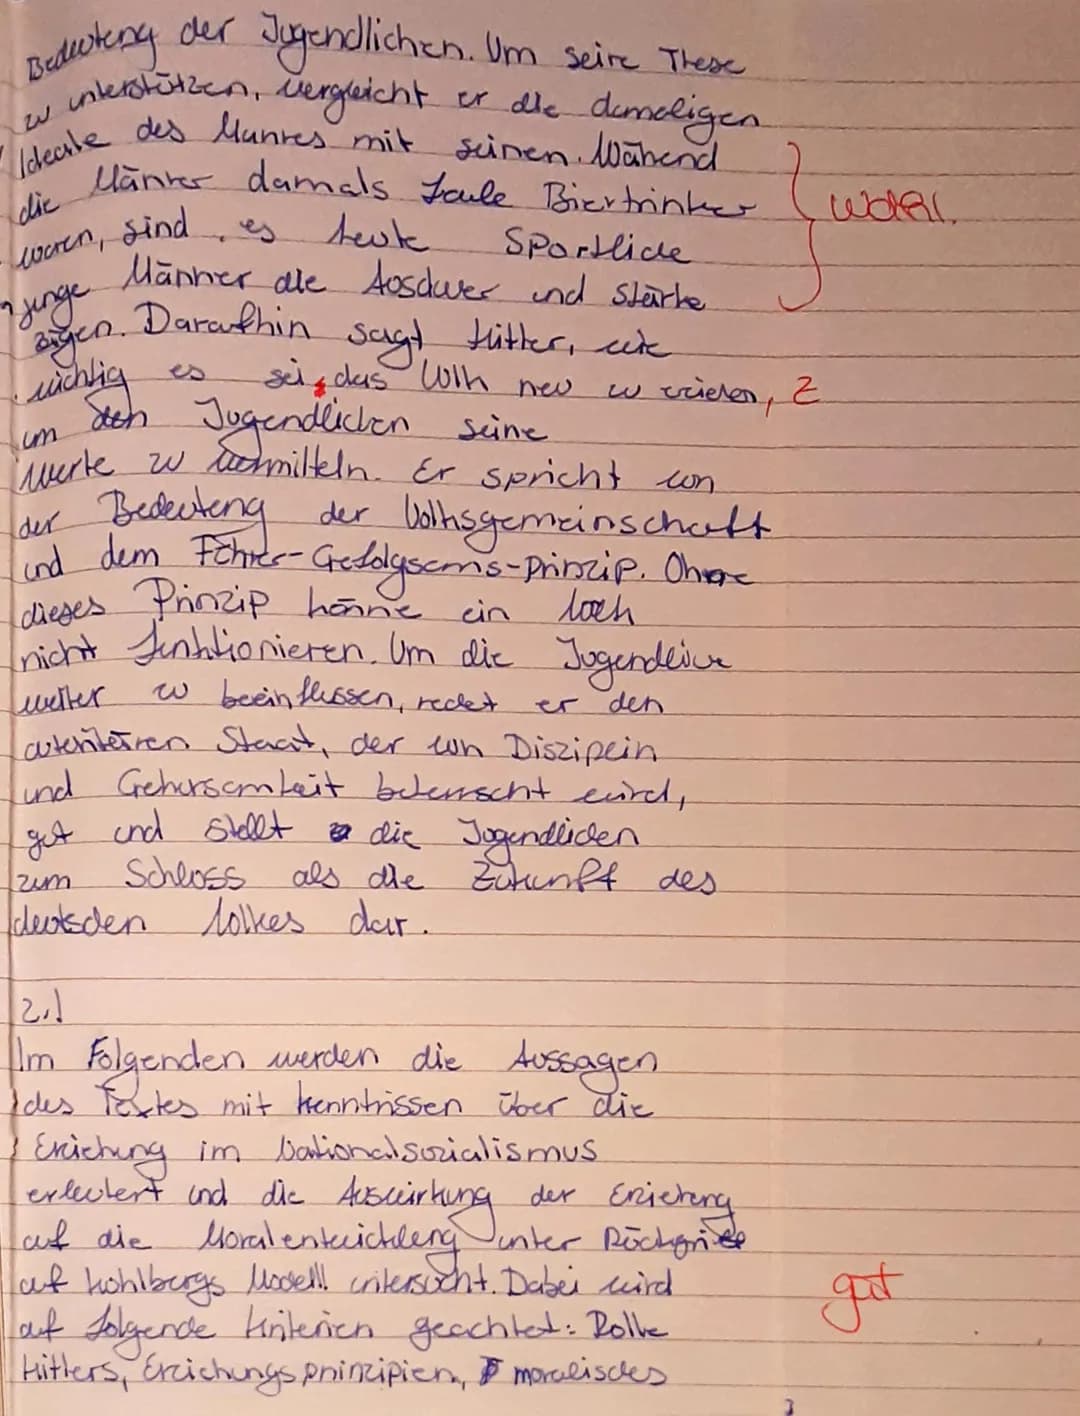 Bedeutung der Jugendlichen. Um seine These
zu unterstützen, vergleicht er die damaligen
Ideale des Mannes mit seinen. Während
die Männer damals faule Biertrinker
waren, sind es heute sportliche
junge Männer die Ausdauer und Stärke
zeigen. Daraufhin sagt Hitler, wie
wichtig es sei, das Volk neu zu erziehen, Z
um den Jugendlichen seine
Werte zu vermitteln. Er spricht von
der Bedeutung der Volksgemeinschaft
und dem Führer-Gefolgsams-Prinzip. Ohne
dieses Prinzip könne ein Volk
nicht funktionieren. Um die Jugendliche
weiter zu beeinflussen, redet er den
autoritären Staat, der von Disziplin
und Gehorsamkeit beherrscht wird,
gut und stellt die Jugendlichen
zum Schluss als die Zukunft des
deutschen Volkes dar.
2.)
Im Folgenden werden die Aussagen
des Textes mit Kenntnissen über die
Erziehung im Nationalsozialismus
erläutert und die Auswirkung der Erziehung
auf die Moralentwicklung unter Rückgriff
auf Kohlbergs Modell untersucht. Dabei wird
auf folgende Kriterien geachtet: Rolle
gut
Hitlers, Erziehungsprinzipien, moralisches
3